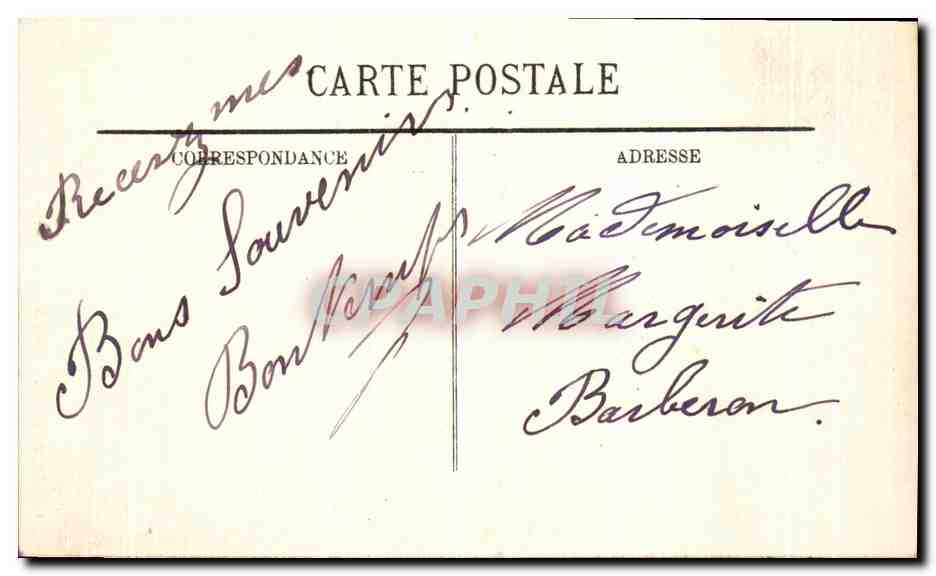 CARTE POSTALE
CORRESPONDANCE
Recevez mes
Bons Souvenirs
ADRESSE
Mademoiselle
Margerite
Barberon.
CPAPHIL